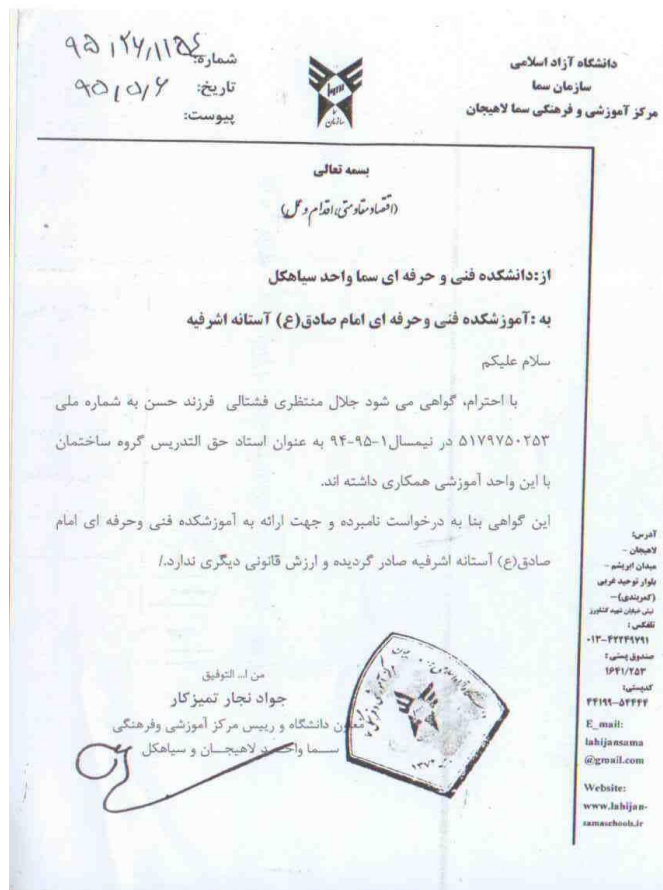 دانشگاه آزاد اسلامی
سازمان سما
مرکز آموزشی و فرهنگی سما لاهیجان
سما
سازمان
شماره: ۹۵/۲۶/۱۱۵۴
تاریخ: ۹۵/۵/۶
پیوست:
بسمه تعالی
(اقتصاد مقاومتی، اقدام و عمل)
از:دانشکده فنی و حرفه ای سما واحد سیاهکل
به :آموزشکده فنی وحرفه ای امام صادق(ع) آستانه اشرفیه
سلام علیکم
با احترام، گواهی می شود جلال منتظری فشتالی فرزند حسن به شماره ملی
۵۱۷۹۷۵۰۲۵۳ در نیمسال۱-۹۵-۹۴ به عنوان استاد حق التدریس گروه ساختمان
با این واحد آموزشی همکاری داشته اند.
این گواهی بنا به درخواست نامبرده و جهت ارائه به آموزشکده فنی وحرفه ای امام
صادق(ع) آستانه اشرفیه صادر گردیده و ارزش قانونی دیگری ندارد./
من ا... التوفیق
جواد نجار تمیزکار
معاون دانشگاه و رییس مرکز آموزشی وفرهنگی
ســما واحـــد لاهیجــان و سیاهکل
۱۳۷۰
آدرس:
لاهیجان -
میدان ابریشم -
بلوار توحید غربی
(کمربندی)-
نبش خیابان شهید کشاورز
تلفکس :
۰۱۳-۴۲۲۴۹۷۹۱
صندوق پستی :
۱۶۴۱/۲۵۳
کدپستی:
۴۴۱۹۹-۵۴۴۴۴
E_mail:
lahijansama
@gmail.com
Website:
www.lahijan-
samaschools.ir